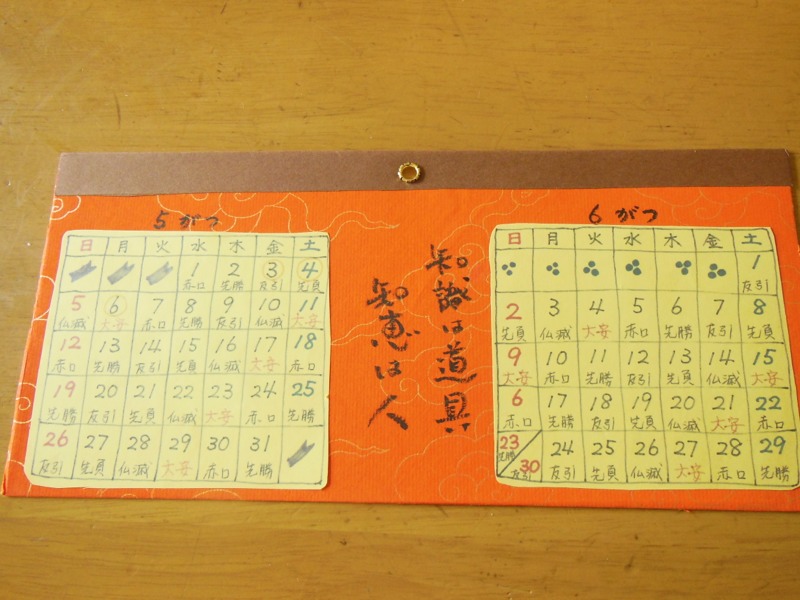 5がつ
日 月 火 水 木 金 土
1 2 3 4
赤口 先勝 友引 先負
5 6 7 8 9 10 11
仏滅 大安 赤口 先勝 友引 仏滅 大安
12 13 14 15 16 17 18
赤口 先勝 友引 先負 仏滅 大安 赤口
19 20 21 22 23 24 25
先勝 友引 先負 仏滅 大安 赤口 先勝
26 27 28 29 30 31
友引 先負 仏滅 大安 赤口 先勝
知識は道具
知恵は人
6がつ
日 月 火 水 木 金 土
1
友引
2 3 4 5 6 7 8
先負 仏滅 大安 赤口 先勝 友引 先負
9 10 11 12 13 14 15
大安 赤口 先勝 友引 先負 仏滅 大安
6 17 18 19 20 21 22
赤口 先勝 友引 先負 仏滅 大安 赤口
23 30 24 25 26 27 28 29
先勝 友引 友引 先負 仏滅 大安 赤口 先勝